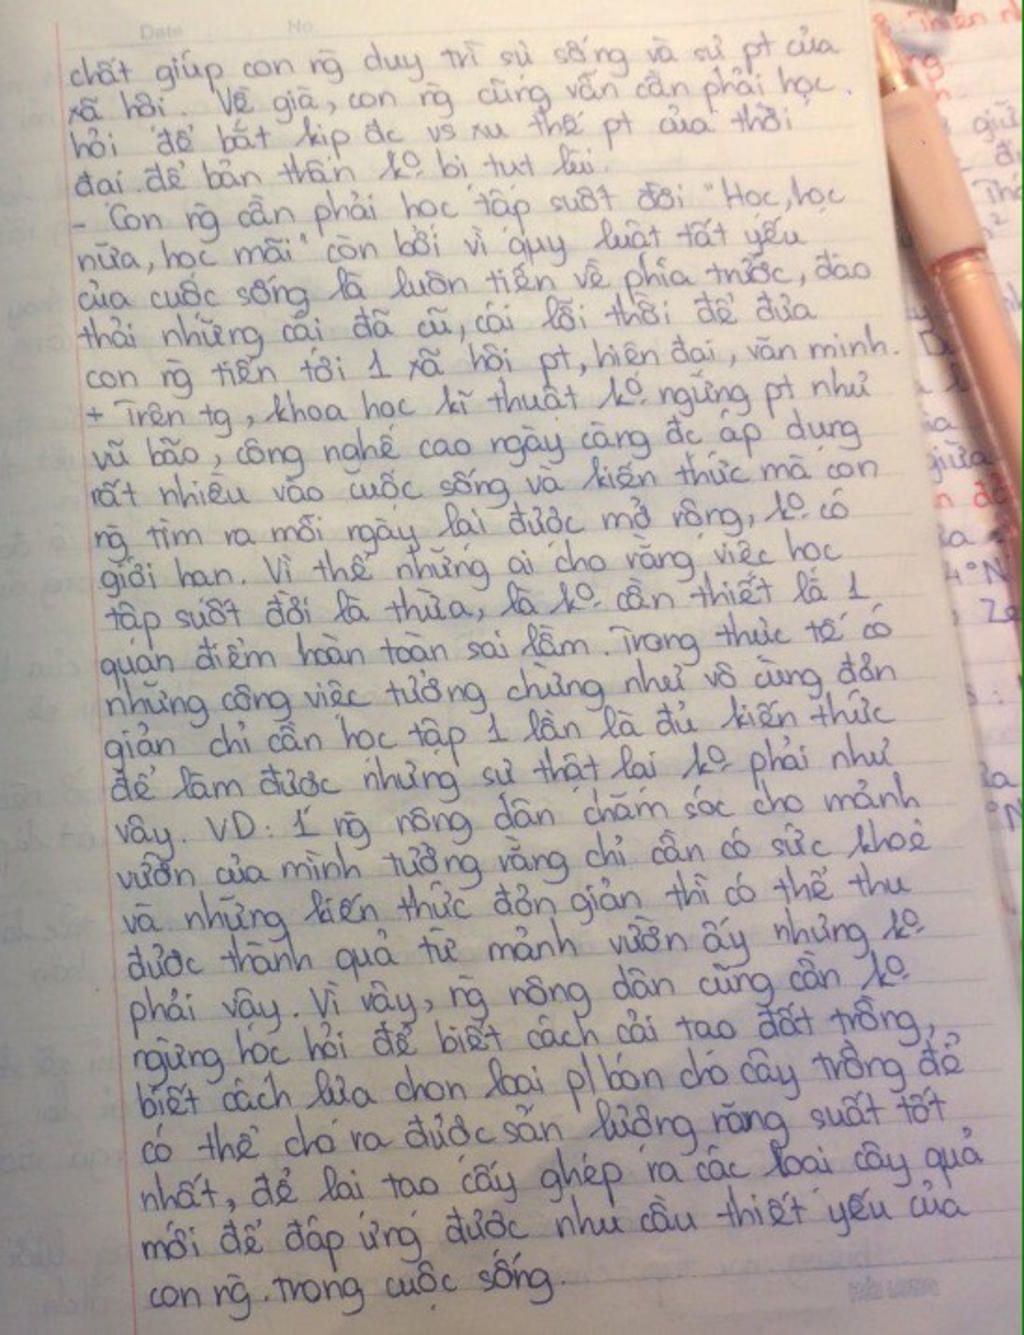 Date No
chất giúp con ng̃ duy trì sự sống và sự pt của
xã hội. Về già, con ng̃ cũng vẫn cần phải học
hỏi để bắt kịp đc vs xu thế pt của thời
đại để bản thân ko bị tụt lùi.
- Con ng̃ cần phải học tập suốt đời "Học, học
nữa, học mãi" còn bởi vì quy luật tất yếu
của cuộc sống là luôn tiến về phía trước, đào
thải những cái đã cũ, cái lỗi thời để đưa
con ng̃ tiến tới 1 xã hội pt, hiện đại, văn minh.
+ Trên tg, khoa học kĩ thuật ko ngừng pt như
vũ bão, công nghệ cao ngày càng đc áp dụng
rất nhiều vào cuộc sống và kiến thức mà con
ng̃ tìm ra mỗi ngày lại được mở rộng, ko có
giới hạn. Vì thế những ai cho rằng việc học
tập suốt đời là thừa, là ko cần thiết là 1
quan điểm hoàn toàn sai lầm. Trong thực tế có
những công việc tưởng chừng như vô cùng đơn
giản chỉ cần học tập 1 lần là đủ kiến thức
để làm được nhưng sự thật lại ko phải như
vậy. VD: 1 ng̃ nông dân chăm sóc cho mảnh
vườn của mình tưởng rằng chỉ cần có sức khoẻ
và những kiến thức đơn giản thì có thể thu
được thành quả từ mảnh vườn ấy nhưng ko
phải vậy. Vì vậy, ng̃ nông dân cũng cần ko
ngừng học hỏi để biết cách cải tạo đất trồng,
biết cách lựa chọn loại p/bón cho cây trồng để
có thể cho ra được sản lượng năng suất tốt
nhất, để lai tạo cấy ghép ra các loại cây quả
mới để đáp ứng được nhu cầu thiết yếu của
con ng̃ trong cuộc sống.